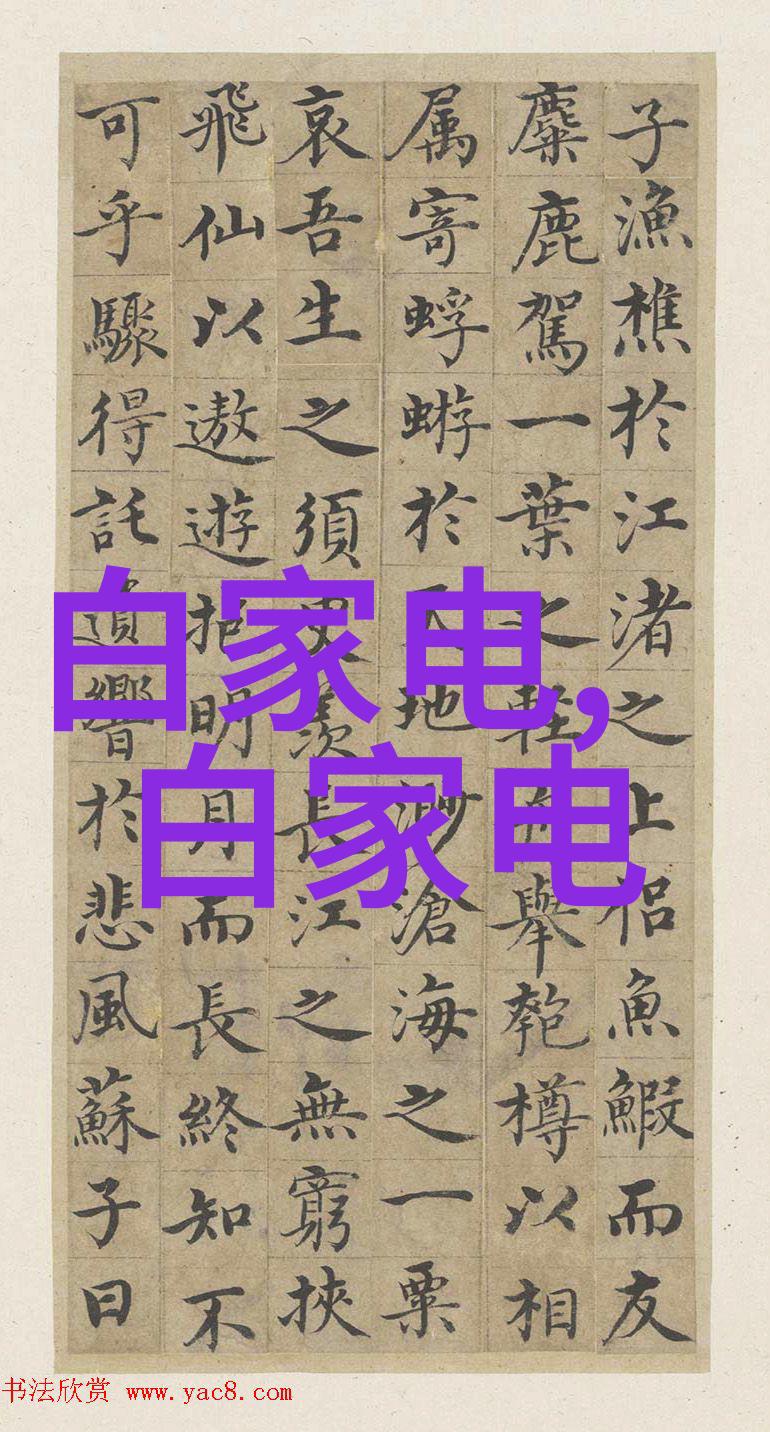 子漁樵於江渚之上侶魚鰕而友
麋鹿駕一葉之輕舉匏樽以相
属寄蜉蝣於地渺滄海之一粟
哀吾生之須臾羨長江之無窮挾
飛仙以遨遊抱明月而長終知不
可乎驟得託遺響於悲風蘇子曰
白家电,
白家电
书法欣赏 www.yac8.com